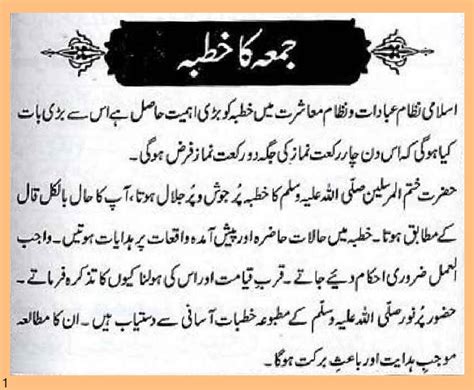 جمعہ کا خطبہ
اسلامی نظام عبادات و نظام معاشرت میں خطبہ کو بڑی اہمیت حاصل ہے اس سے بڑی بات
کیا ہوگی کہ اس دن چار رکعت نماز کی جگہ دو رکعت نماز فرض ہوگی ۔
حضرت ختم المرسلین صلّی اللہ علیہ وسلم کا خطبہ پُر جوش و پُر جلال ہوتا، آپ کا حال بالکل قال
کے مطابق ہوتا ۔ خطبہ میں حالات حاضرہ اور پیش آمدہ واقعات پر ہدایات ہوتیں ۔ واجب
العمل ضروری احکام دیئے جاتے ۔ قربِ قیامت اور اس کی ہولناکیوں کا تذکرہ فرماتے ۔
حضور پُر نور صلّی اللہ علیہ وسلّم کے مطبوعہ خطبات آسانی سے دستیاب ہیں ۔ ان کا مطالعہ
موجبِ ہدایت اور باعثِ برکت ہوگا ۔
1